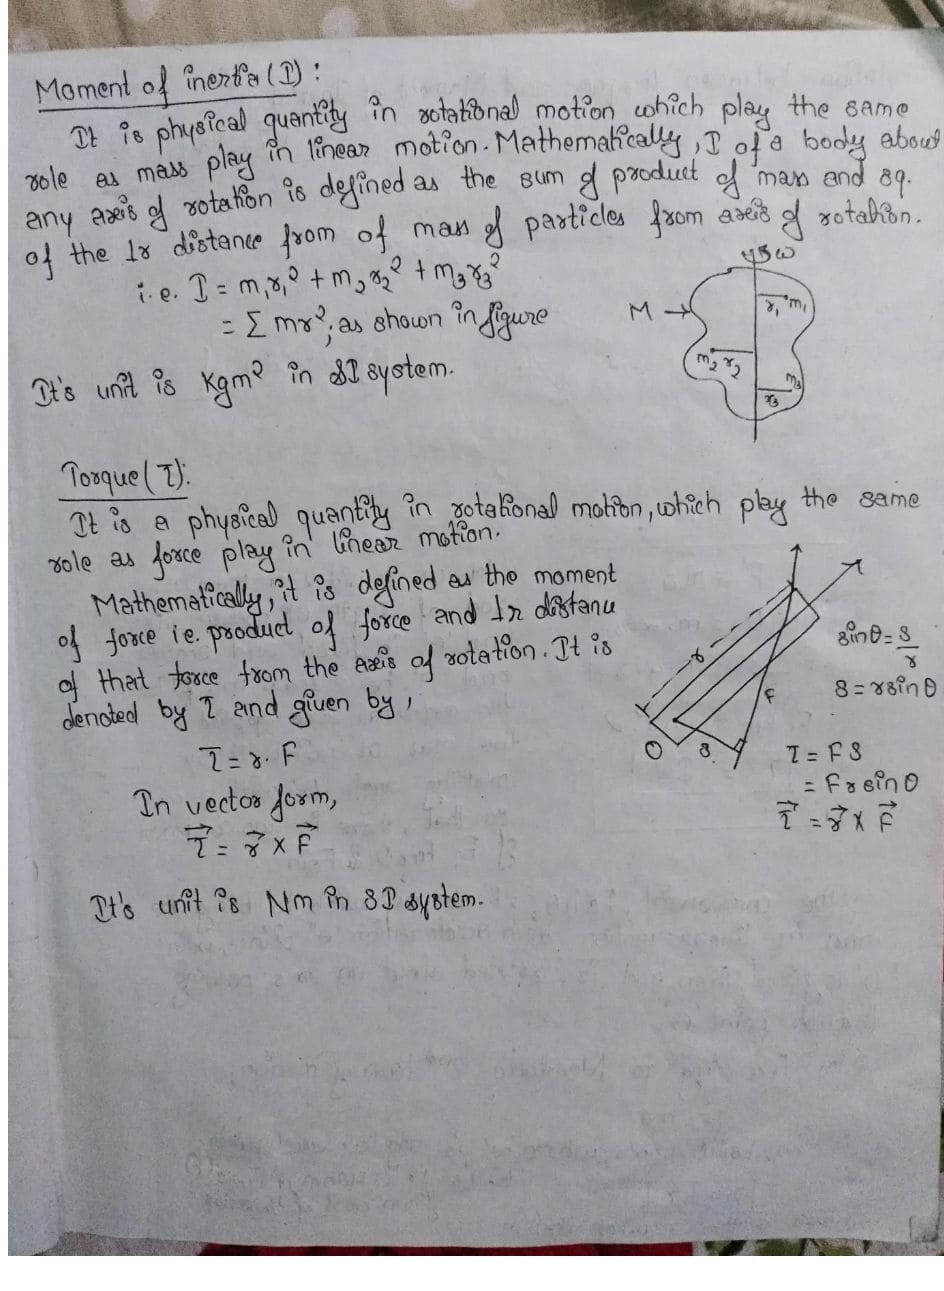 Moment of inertia (I) :
It is physical quantity in rotational motion which play the same
role as mass play in linear motion. Mathematically, I of a body about
any axis of rotation is defined as the sum of product of mass and sq.
of the ⊥r distance from of mass of particles from axis of rotation.
i.e. I = m₁r₁² + m₂r₂² + m₃r₃²
= Σ mr², as shown in figure
It's unit is Kgm² in SI system.
ω
M
r₁ m₁
m₂ r₂
m₃
r₃
Torque (τ):
It is a physical quantity in rotational motion, which play the same
role as force play in linear motion.
Mathematically, it is defined as the moment
of force ie. product of force and ⊥r distanu
of that force from the axis of rotation. It is
denoted by τ and given by,
τ = r. F
In vector form,
τ⃗ = r⃗ × F⃗
It's unit is Nm in SI system.
r
F
O
S
sinθ = S/r
S = r sinθ
τ = F S
= F r sinθ
τ⃗ = r⃗ × F⃗